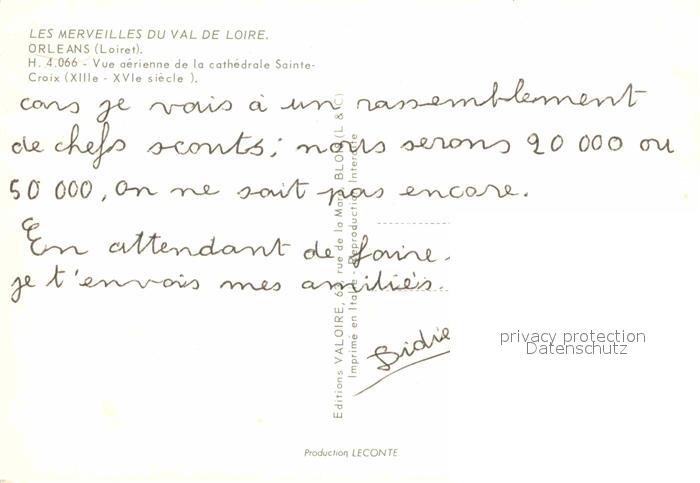 LES MERVEILLES DU VAL DE LOIRE.
ORLEANS (Loiret).
H. 4.066 - Vue aérienne de la cathédrale Sainte-
Croix (XIIIe - XVIe siècle ).
cars je vais à un rassemblement
de chefs scouts; nous serons 20 000 ou
50 000, on ne sait pas encore.
En attendant de faire.
je t'envois mes amitiés.
Didie
Editions VALOIRE, rue de la Mare BLOIS (L & C)
Imprimé en Italie - Reproduction Interdite
privacy protection
Datenschutz
Production LECONTE